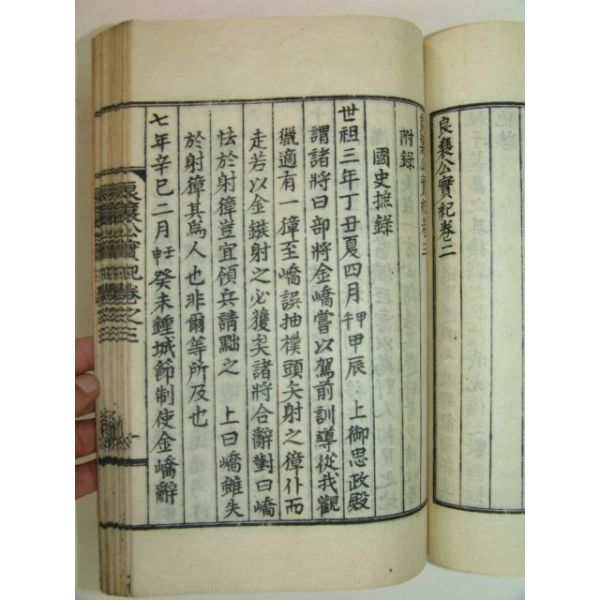 良襄公實紀卷二
良襄公實紀卷之三
附錄
國史摭錄
世祖三年丁丑夏四月甲辰 上御思政殿
謂諸將曰部將金嶠嘗以駕前訓導從我觀
獵適有一獐至嶠誤抽樸頭矢射之獐仆而
走若以金鏃射之必獲矣諸將合辭對曰嶠
怯於射獐豈宜領兵請黜之 上曰嶠雖失
於射獐其爲人也非爾等所及也
七年辛巳二月癸未鍾城節制使金嶠辭
良襄公實紀卷之三